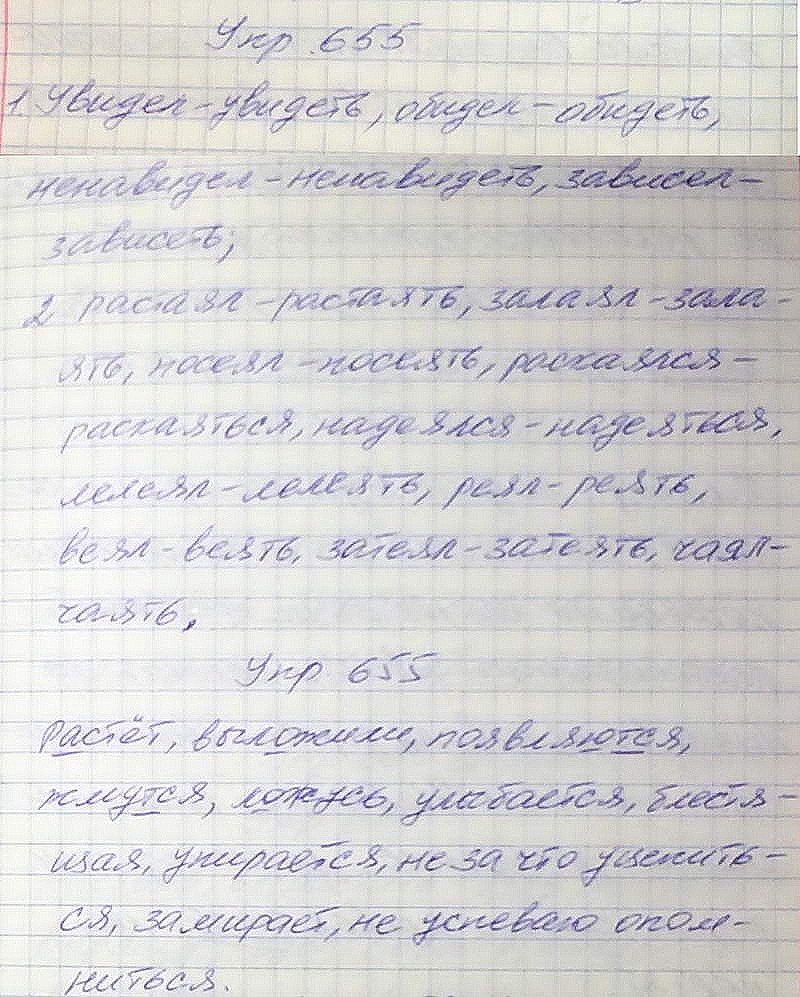 Упр 655
1. Увидел - увидеть, обидел - обидеть,
ненавидел - ненавидеть, зависел -
зависеть;
2 растаял - растаять, залаял - зала-
ять, посеял - посеять, раскаялся -
раскаяться, надеялся - надеяться,
лелеял - лелеять, реял - реять,
веял - веять, затеял - затеять, чаял -
чаять.
Упр 655
Растёт, выложили, появляются,
жмутся, ложусь, улыбается, блестя-
щая, упирается, не за что уцепить-
ся, замирает, не успеваю опом-
ниться.